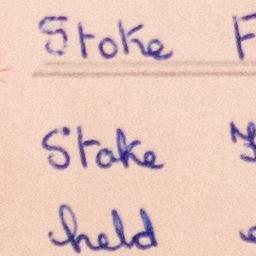 Stoke F
Stoke
held